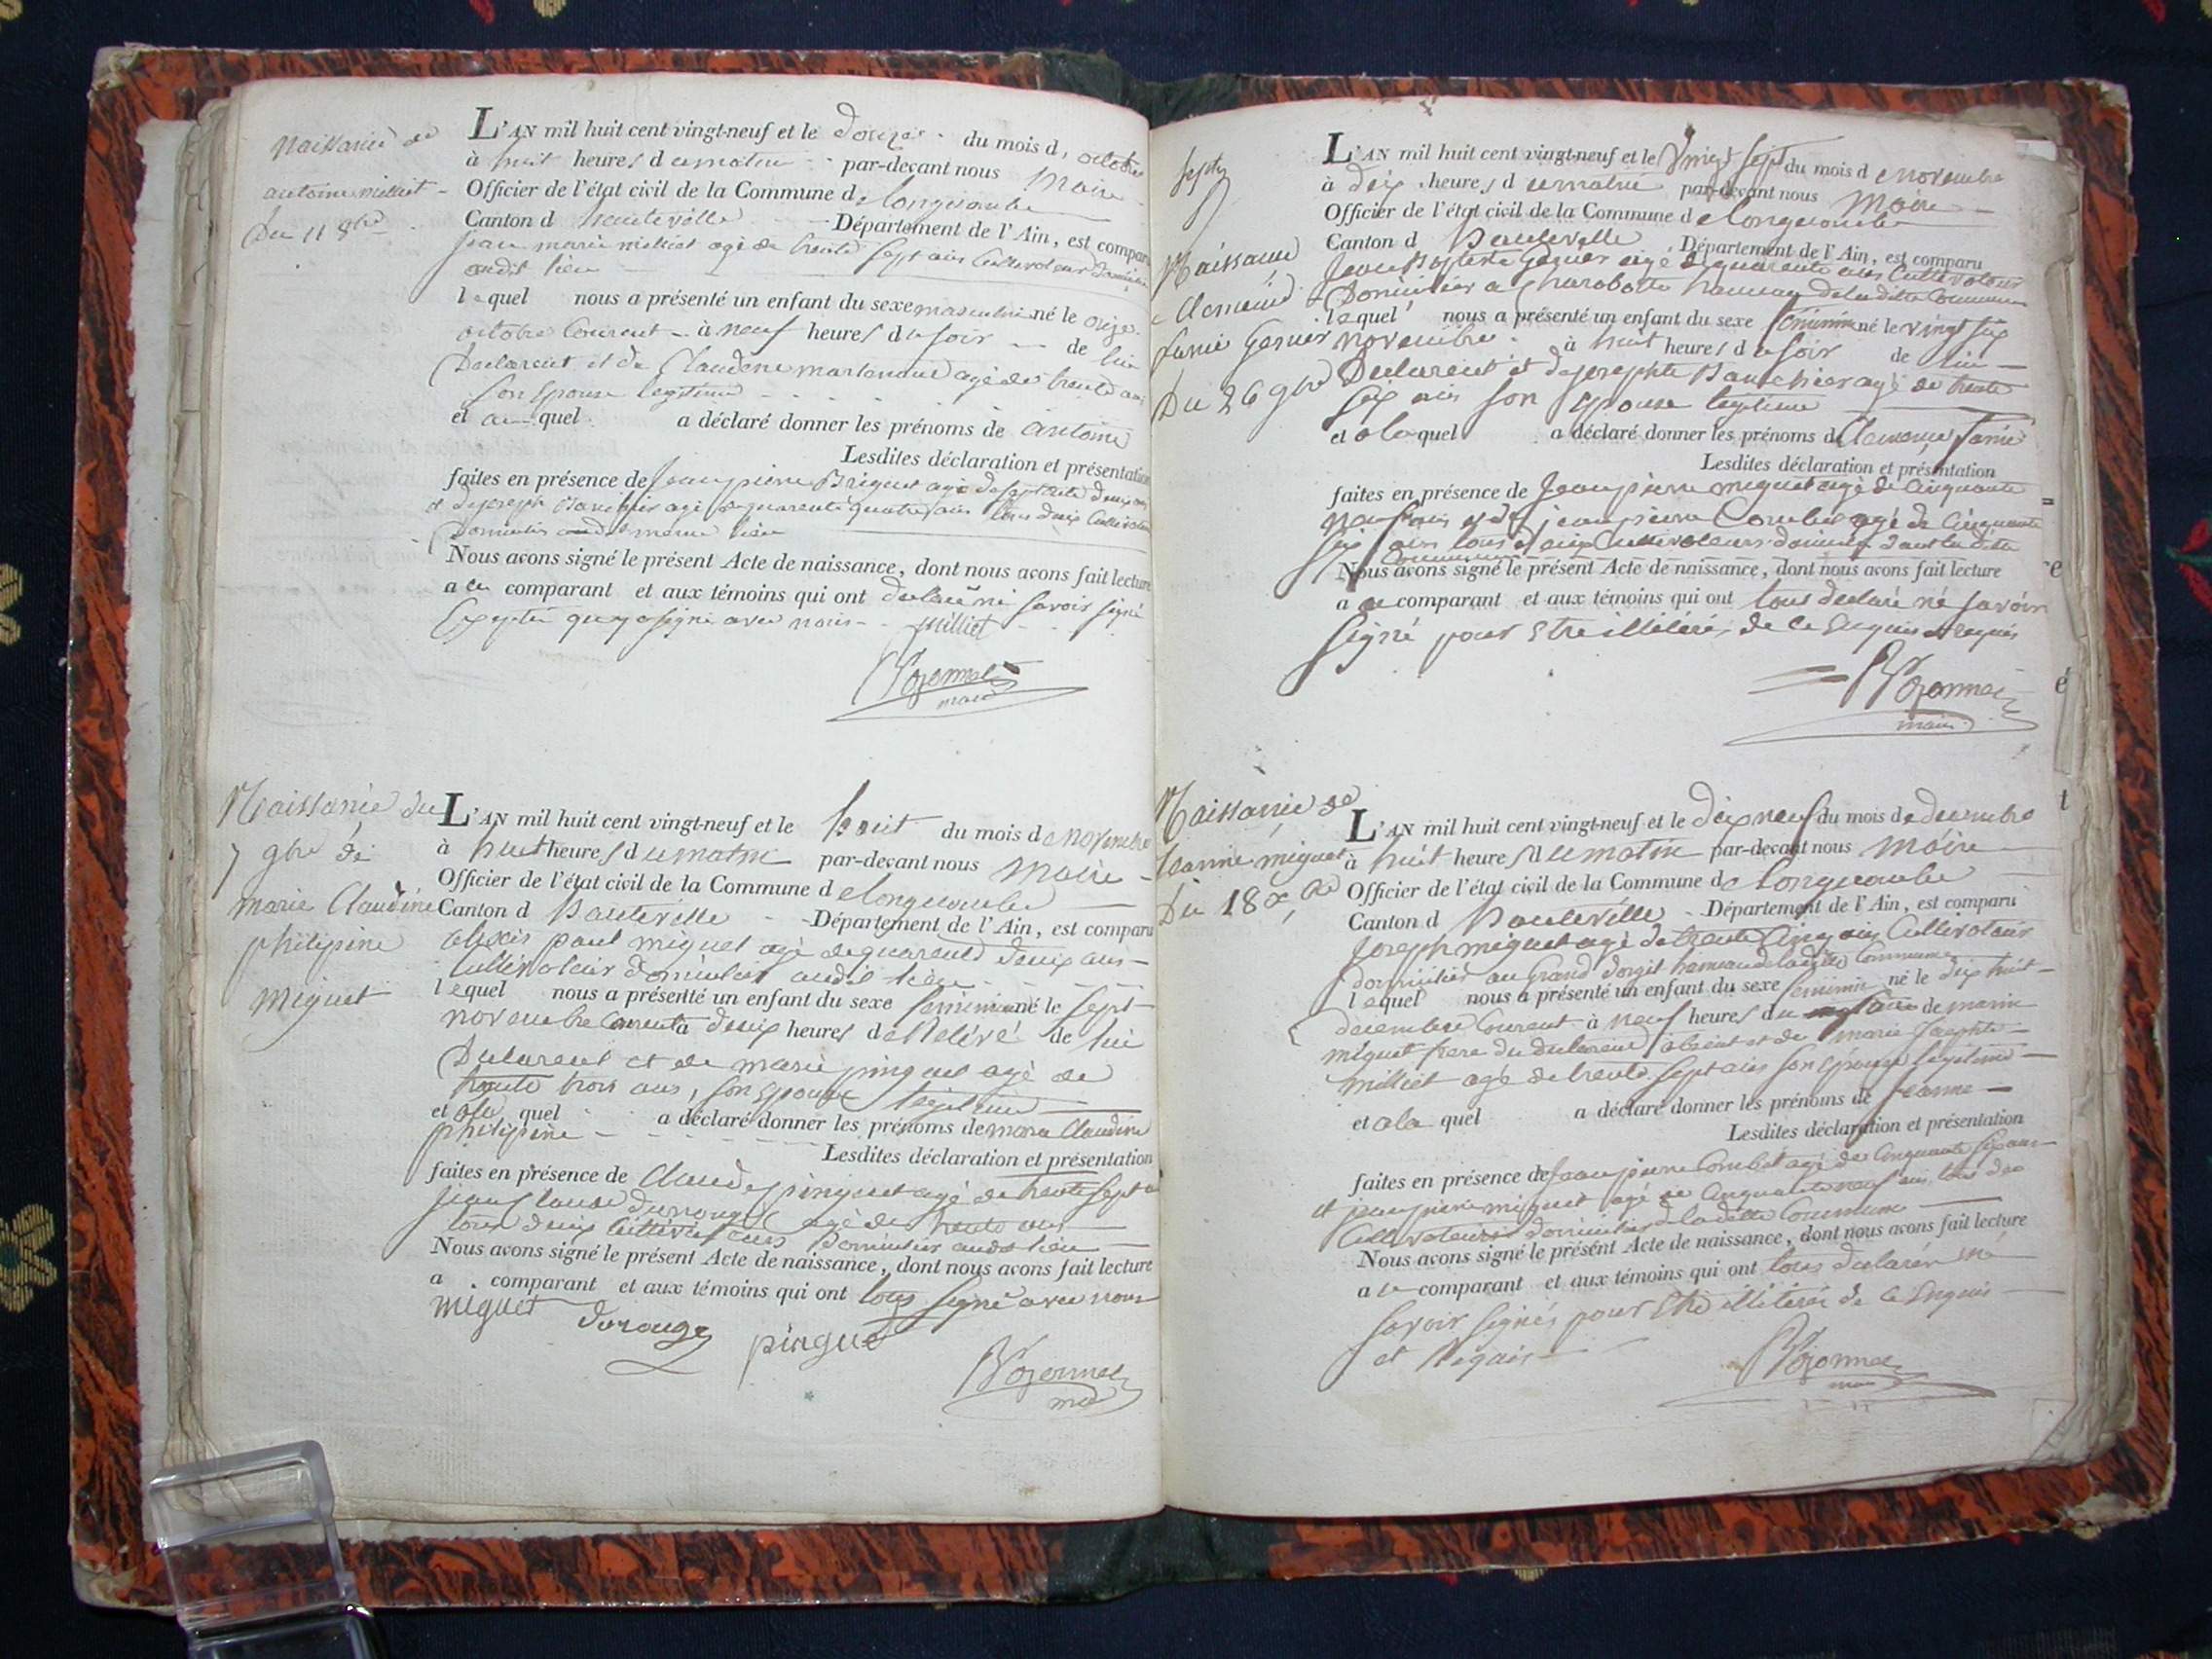 Naissance de
antoine milliet
Du 11 8bre
L'AN mil huit cent vingt-neuf et le douze du mois d octobre
à huit heures du matin par-devant nous Maire
Officier de l'état civil de la Commune de longecombe
Canton d hauteville Département de l'Ain, est comparu
jean marie milliet agé de trente sept ans Cultivateur
audit lieu
lequel nous a présenté un enfant du sexe masculin né le onze
octobre Courent à neuf heures du soir de lui
Declarent et de Claudine agé de trente ans
son Epouse legitime
et au quel a déclaré donner les prénoms de antoine
Lesdites déclaration et présentation
faites en présence de jean pierre Briguet agé de septente deux ans
et de joseph Bauchier agé de quarente quatre ans tous deux Cultivateurs
Domiciliés audit meme lieu
Nous avons signé le présent Acte de naissance, dont nous avons fait lecture
a ce comparant et aux témoins qui ont declaré ni savoir signé
Excepté qui a signé avec nous milliet
maire
Naissance du
7 9bre de
marie Claudine
philipine
miguet
L'AN mil huit cent vingt-neuf et le huit du mois de novembre
à huit heures du matin par-devant nous Maire
Officier de l'état civil de la Commune de longecombe
Canton d hauteville Département de l'Ain, est comparu
alexis paul miguet agé de quarente deux ans
Cultivateur domicilié audit lieu
lequel nous a présenté un enfant du sexe feminin né le sept
novembre Courent à deux heures de de lui
Declarent et de marie pinguet agé de
trente trois ans, son Epouse legitime
et a la quel a déclaré donner les prénoms de marie Claudine
philipine
Lesdites déclaration et présentation
faites en présence de Claude pinguet agé de trente sept
jean Claude agé de trente ans
tous deux Cultivateurs Domiciliés audit lieu
Nous avons signé le présent Acte de naissance, dont nous avons fait lecture
a comparant et aux témoins qui ont tous signé avec nous
miguet dorouge pinguet
Naissance
Du 26 9bre
L'AN mil huit cent vingt-neuf et le Vingt sept du mois de novembre
à dix heures du matin par-devant nous Maire
Officier de l'état civil de la Commune de longecombe
Canton d hauteville Département de l'Ain, est comparu
Jean Baptiste agé de quarente ans Cultivateur
Domicilier a hameau de laditte Commune
lequel nous a présenté un enfant du sexe feminin né le vingt six
novembre à huit heures du soir de lui
Declarent et de josephte Bauchier agé de trente
six ans son Epouse legitime
et a la quel a déclaré donner les prénoms de
Lesdites déclaration et présentation
faites en présence de Jean pierre miguet agé de Cinquante
neuf ans et de jean pierre Combet agé de Cinquante
six ans tous deux Cultivateurs dans laditte
Commune
Nous avons signé le présent Acte de naissance, dont nous avons fait lecture
a ce comparant et aux témoins qui ont tous declaré né savoir
signé pour Etre illitérés de ce Enquis et requis
maire
Naissance de
Jeanne miguet
Du 18 Xbre
L'AN mil huit cent vingt-neuf et le dix neuf du mois de decembre
à huit heures du matin par-devant nous Maire
Officier de l'état civil de la Commune de longecombe
Canton d hauteville Département de l'Ain, est comparu
Joseph miguet agé de trente Cinq ans Cultivateur
domicilier au Grand hameau de laditte Commune
lequel nous a présenté un enfant du sexe feminin né le dix huit
decembre Courent à neuf heures du de
miguet frere du declarent absent et de marie Josephte
milliet agé de trente sept ans son Epouse legitime
et a la quel a déclaré donner les prénoms de Jeanne
Lesdites déclaration et présentation
faites en présence de jean pierre Combet agé de Cinquante six ans
et jean pierre miguet agé de Cinquante neuf ans tous deux
Cultivateurs domicilier de laditte Commune
Nous avons signé le présent Acte de naissance, dont nous avons fait lecture
a ce comparant et aux témoins qui ont tous declarér né
savoir signés pour Etre illitérés de ce Enquis
et Requis